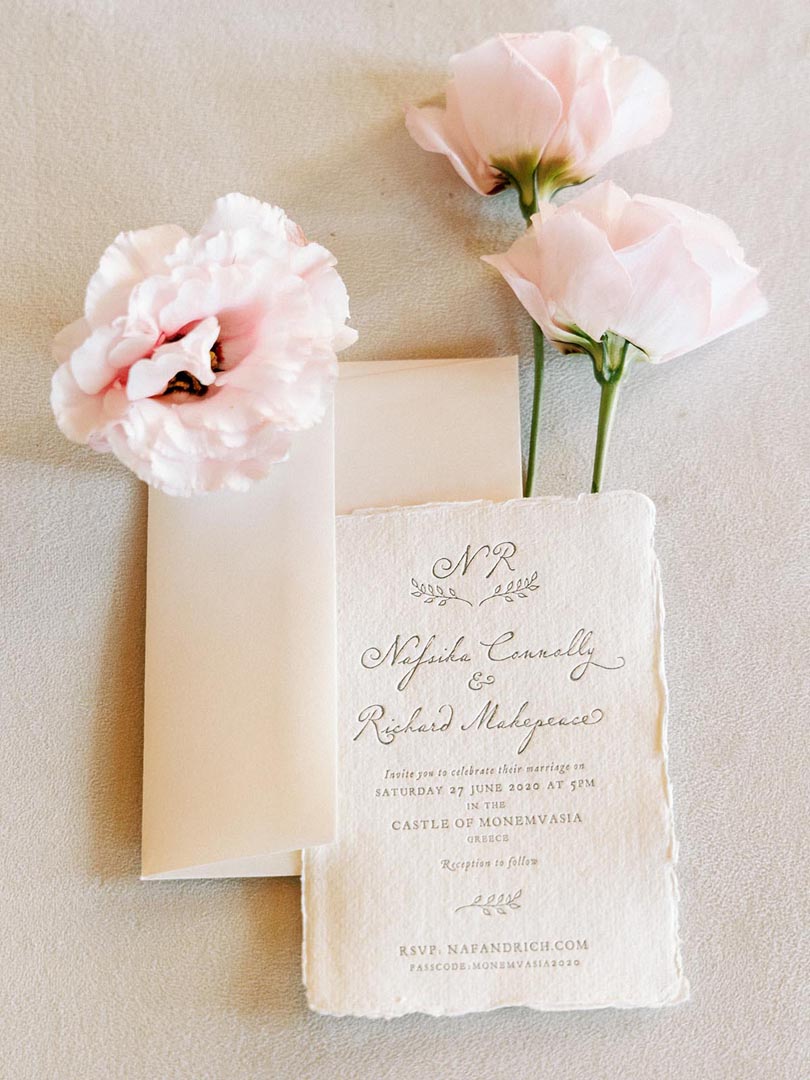 N R
Nafsika Connolly
&
Richard Makepeace
Invite you to celebrate their marriage on
SATURDAY 27 JUNE 2020 AT 5PM
IN THE
CASTLE OF MONEMVASIA
GREECE
Reception to follow
RSVP: NAFANDRICH.COM
PASSCODE:MONEMVASIA2020